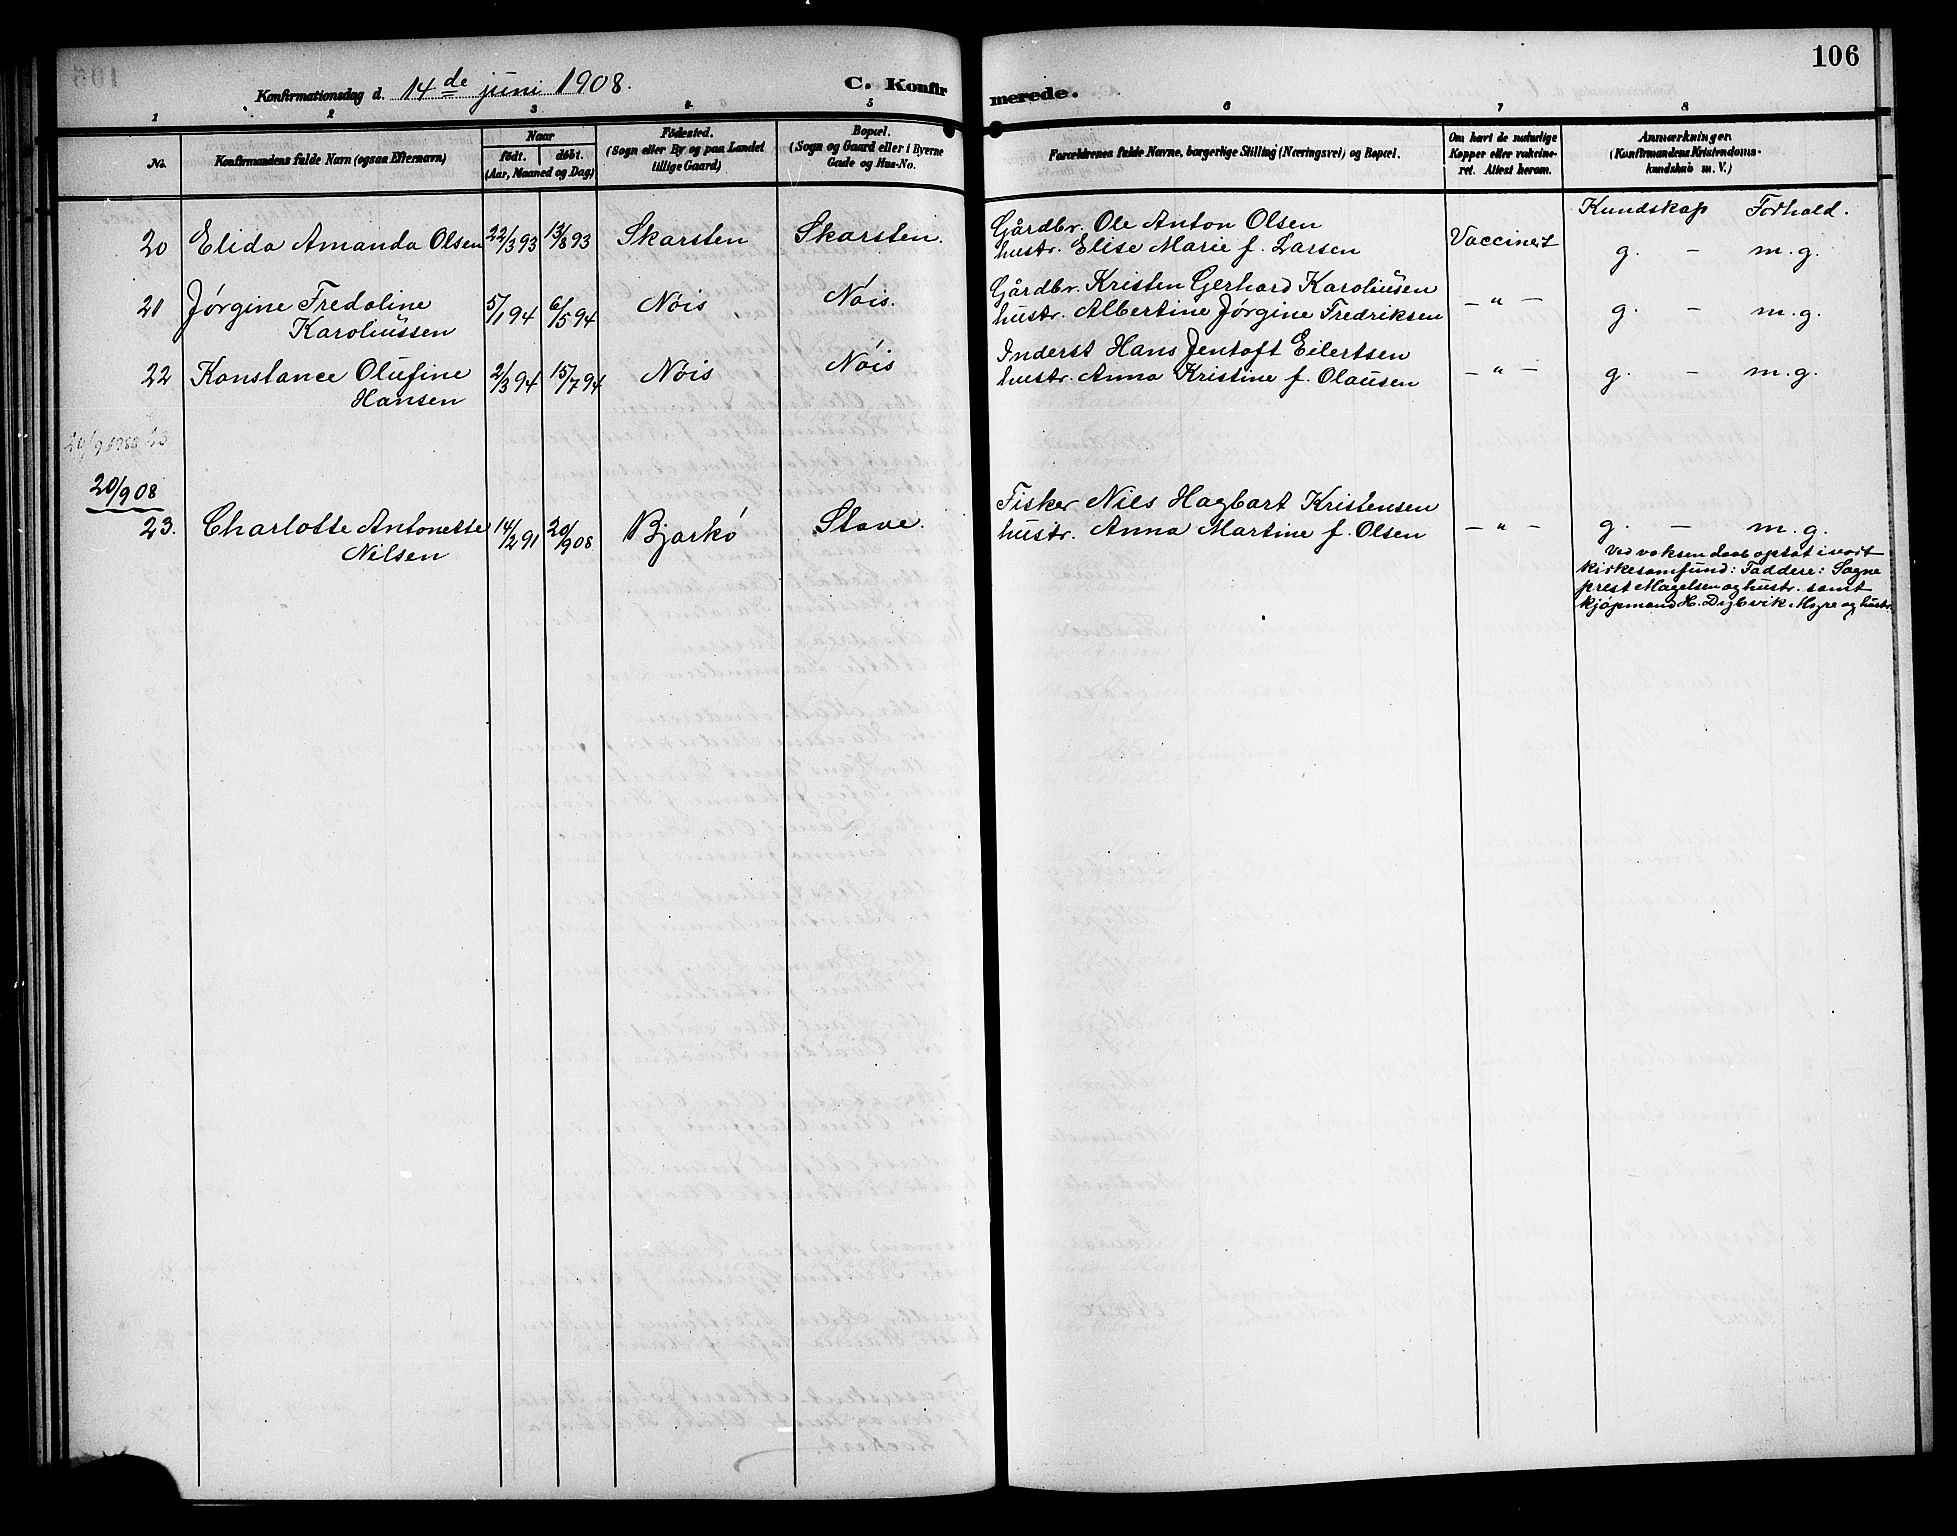 106
Konfirmationsdag d. 14de juni 1908.
C. Konfir
merede.
1 2 3 4 5 6 7 8
No.
Konfirmandens fulde Navn (ogsaa Efternavn)
Naar
födt. döbt.
(Aar, Maaned og Dag)
Födested.
(Sogn eller By og paa Landet
tillige Gaard)
Bopæl.
(Sogn og Gaard eller i Byerne
Gade og Hus-No.
Forældrenes fulde Navne, borgerlige Stilling (Næringsvei) og Bopæl.
Om havt de naturlige
Kopper eller vakcine-
ret. Attest herom.
Anmærkninger
(Konfirmandens Kristendoms-
kundskab m. V.)
Kundskap Forhold.
20 Elida Amanda Olsen 22/3 93 13/8 93 Skarsten Skarsten.
Gårdbr. Ole Anton Olsen
hustr. Elise Marie f. Larsen
Vaccinert
g. – m.g.
21 Jørgine Fredoline
Karoliussen
5/1 94 6/5 94 Nöis Nöis.
Gårdbr. Kristen Gerhard Karoliusen
hustr. Albertine Jørgine Fredriksen
– " –
g. – m.g.
22 Konstance Olufine
Hansen
2/3 94 15/7 94 Nöis Nöis
Inderst Hans Jentoft Eilertsen
hustr. Anna Kristine f. Olausen
– " –
g. – m.g.
20/9 08
23. Charlotte Antonette
Nilsen
14/2 91 20/9 08 Bjarkö Stave.
Fisker Nils Hagbart Kristensen
hustr. Anna Martine f. Olsen
– " –
g. – m.g.
Ved voksen daab optat i vort
kirkesamfund: Faddere: Sogne
prest Magelsen og hustr. samt
kjøpmand H. Digervik, Myre og hustr.